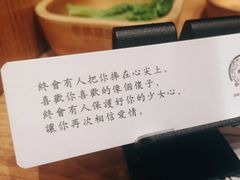 終會有人把你捧在心尖上，
喜歡你喜歡的像個傻子，
終會有人保護好你的少女心，
讓你再次相信愛情。